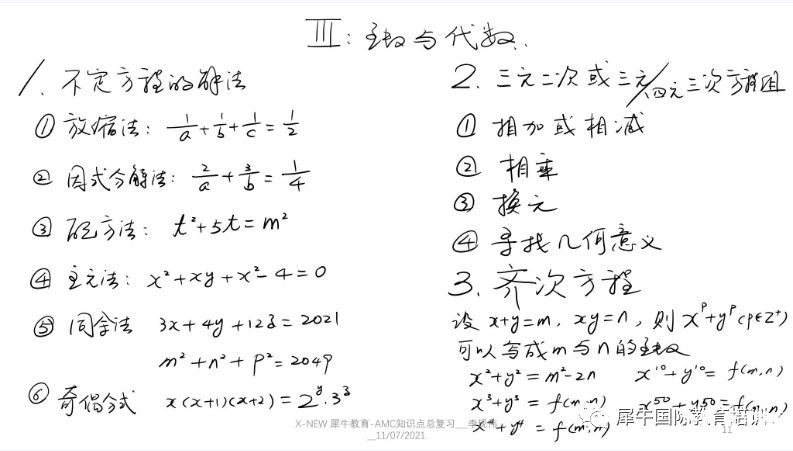 III: 函数与代数.
1. 不定方程的解法
① 放缩法: 1/a + 1/b + 1/c = 1/2
② 因式分解法: 2/a + 3/b = 1/4
③ 配方法: t²+5t = m²
④ 主元法: x²+xy+x²-4=0
⑤ 同余法 3x+4y+12z=2021
m²+n²+p²=2049
⑥ 奇偶分式 x(x+1)(x+2)=2^y·3^z
2. 三元二次或三元/四元三次方程组
① 相加或相减
② 相乘
③ 换元
④ 寻找几何意义
3. 齐次方程
设 x+y=m, xy=n, 则 x^p+y^p (p∈Z⁺)
可以写成m与n的函数
x²+y²=m²-2n x¹⁰+y¹⁰=f(m,n)
x³+y³=f(m,n) x⁵⁰+y⁵⁰=f(m,n)
x⁴+y⁴=f(m,n)
犀牛国际教育
X-NEW 犀牛教育-AMC知识点总复习__李
__11/07/2021
11